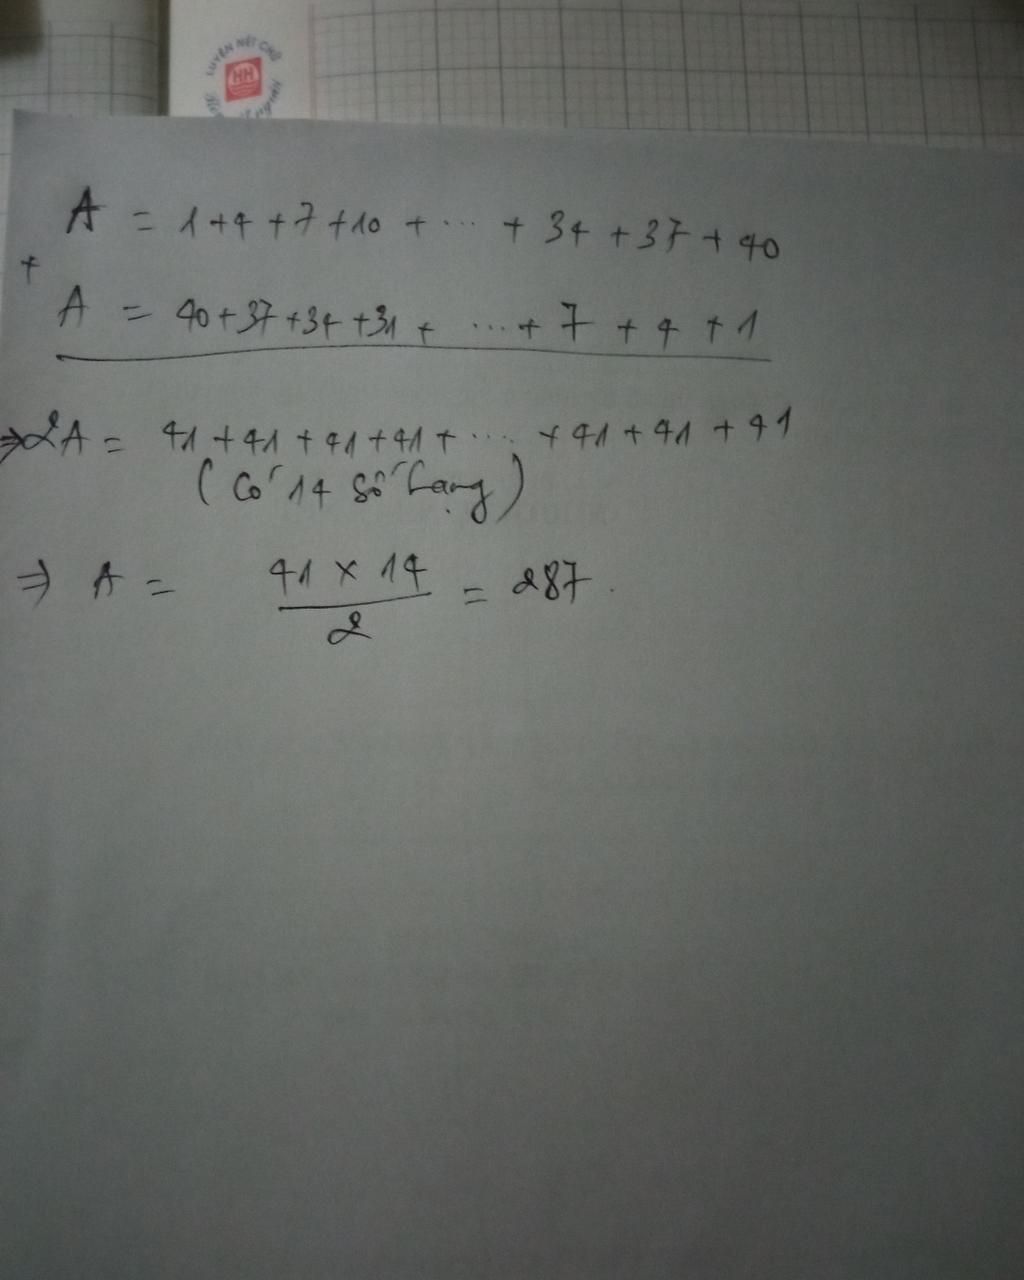 LUYỆN NÉT CHỮ
HH
A = 1+4+7+10+ ... + 34+37+40
+
A = 40+37+34+31+ ...+ 7 + 4 + 1
⇒2A = 41+41+41+41+ .... +41+41+41
(Có 14 số hạng)
⇒ A = 41 × 14 / 2 = 287.